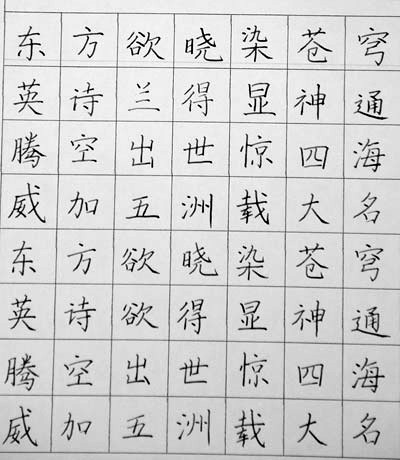 东方欲晓染苍穹
英诗兰得显神通
腾空出世惊四海
威加五洲载大名
东方欲晓染苍穹
英诗欲得显神通
腾空出世惊四海
威加五洲载大名